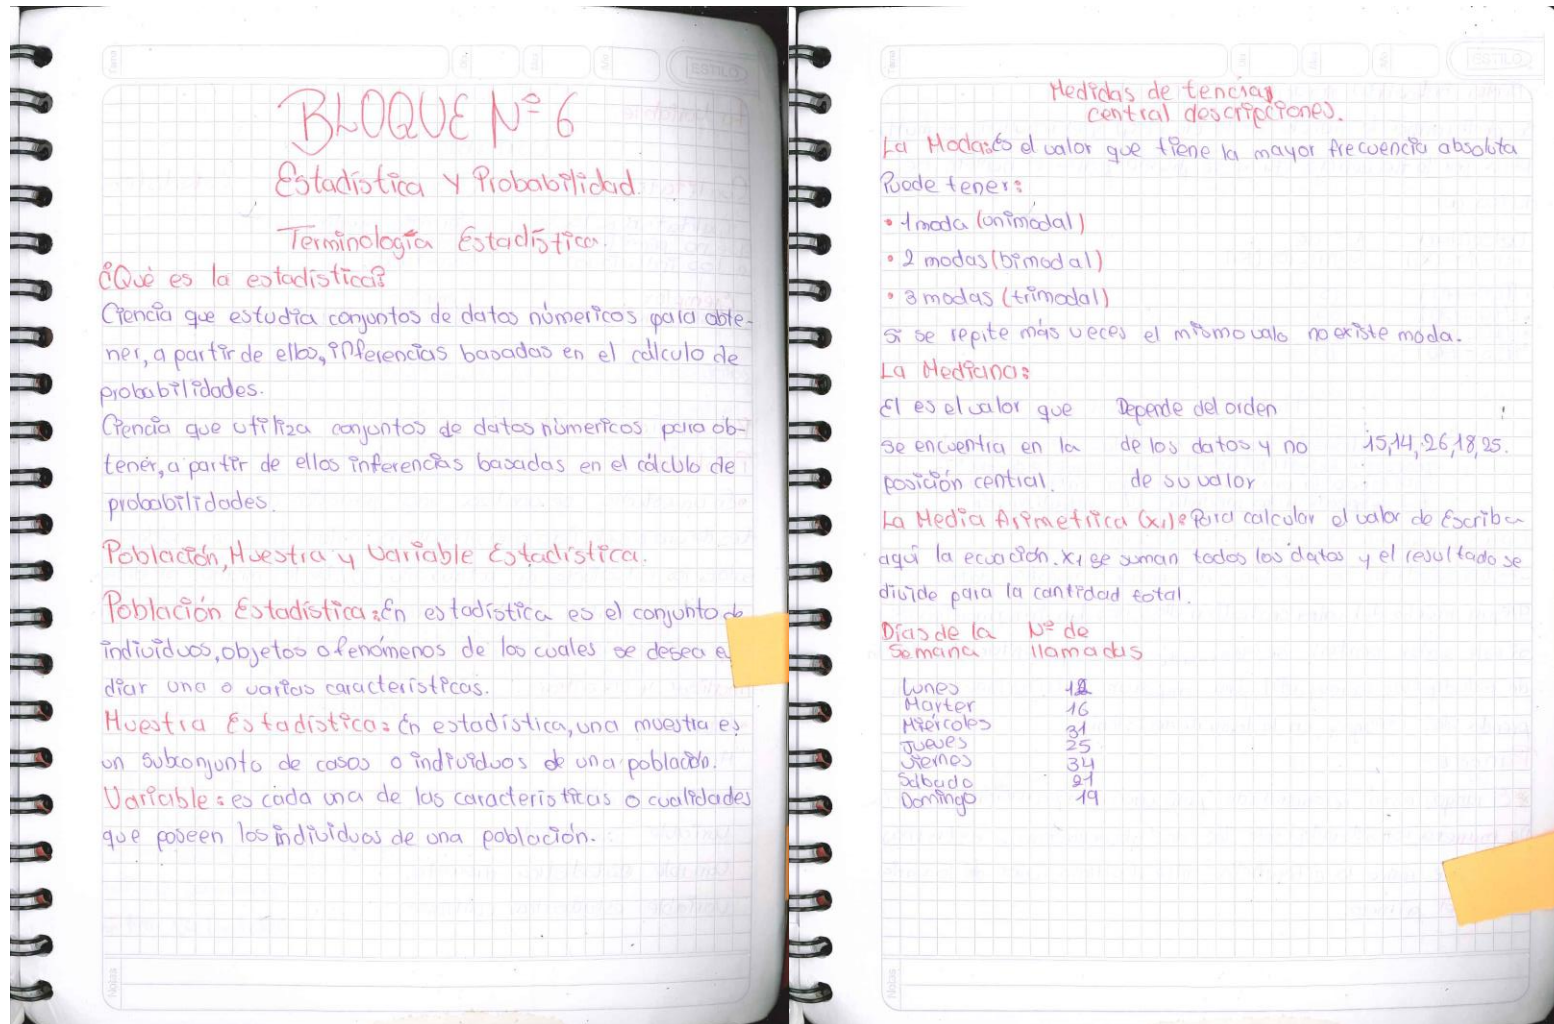 ESTILO
BLOQUE Nº 6
Estadística y Probabilidad.
Terminología Estadística.
¿Qué es la estadística?
Ciencia que estudia conjuntos de datos númericos para obte-
ner, a partir de ellos, inferencias basadas en el cálculo de
probabilidades.
Ciencia que utiliza conjuntos de datos númericos para ob-
tener, a partir de ellos inferencias basadas en el cálculo de
probabilidades.
Población, Muestra y Variable Estadística.
Población Estadística: En estadística es el conjunto de
individuos, objetos o fenómenos de los cuales se desea e
diar una o varias características.
Muestra Estadística: En estadística, una muestra es
un subconjunto de casos o individuos de una población.
Variable: es cada una de las características o cualidades
que poseen los individuos de una población.
Notas
ESTILO
Medidas de tencias
central descripciones.
La Moda: Es el valor que tiene la mayor frecuencia absoluta
Puede tener:
• 1 moda (unimodal)
• 2 modas (bimodal)
• 3 modas (trimodal)
Si se repite más veces el mismo valo no existe moda.
La Mediana:
El es el valor que Depende del orden
se encuentra en la de los datos y no 15,14,26,18,25.
posición central. de su valor
La Media Arimetrica (x₁): Para calcular el valor de Escriba
aquí la ecuación. x₁ se suman todos los datos y el resultado se
divide para la cantidad total.
Días de la Nº de
Semana llamadas
Lunes
Marter 16
Miércoles 31
Jueves 25
Viernes 34
Sábado 21
Domingo 19
Notas